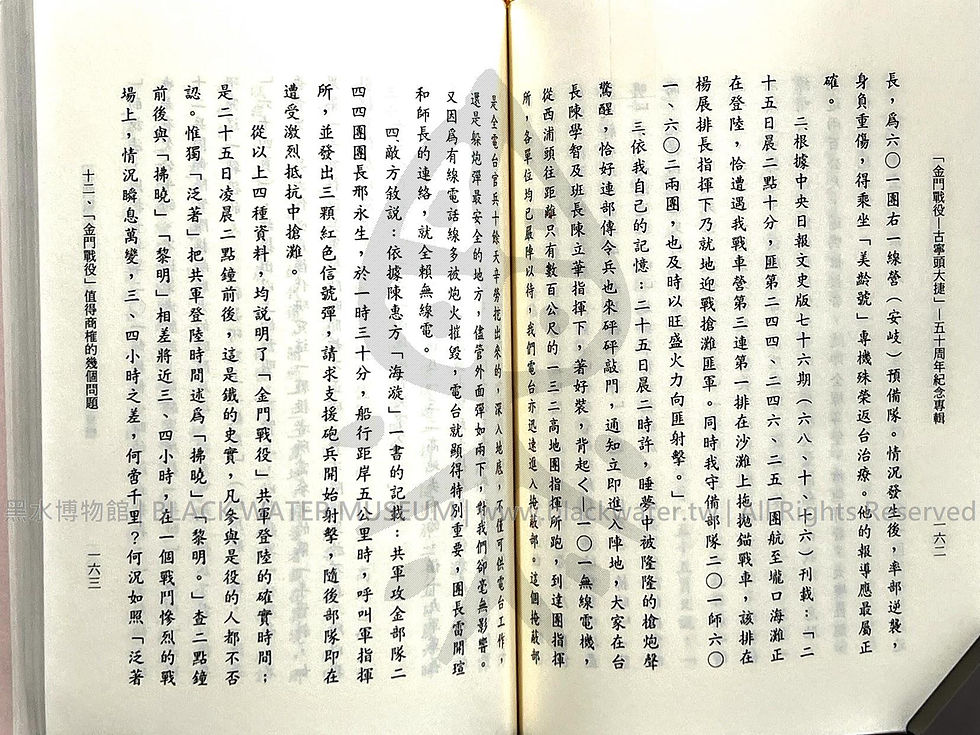 「金門戰役—古寧頭大捷」—五十周年紀念專輯
一六二
長，為六〇一團右一線營（安岐）預備隊。情況發生後，率部逆襲，
身負重傷，得乘坐「美齡號」專機殊榮返台治療。他的報導應最屬正
確。
二根據中央日報文史版七十六期（六八、十、六）刊載：「二
十五日晨二點十分，匪第二四四、二四六、二五一團航至壠口海灘正
在登陸，恰遭遇我戰車營第三連第一排在沙灘上拖拋錨戰車，該排在
楊展排長指揮下乃就地迎戰搶灘匪軍。同時我守備部隊二〇一師六〇
一、六〇二兩團，也及時以旺盛火力向匪射擊。」
三依我自己的記憶：二十五日晨二時許，睡夢中被隆隆的槍炮聲
驚醒，恰好連部傳令兵也來砰砰敲門，通知立即進入陣地，大家在台
長陳學智及班長陳立華指揮下，著好裝，背起ㄑ—一〇一無線電機，
從西浦頭往距離只有數百公尺的一三二高地團指揮所跑，到達團指揮
所，各單位均已嚴陣以待，我們電台亦迅速進入掩蔽部。這個掩蔽部
是全電台官兵十餘天辛勞挖出來的，深入地底，不僅可供電台工作，
還是躲炮彈最安全的地方，儘管外面彈如雨下，對我們卻毫無影響。
又因為有線電話線多被炮火摧毀，電台就顯得特別重要，團長雷開瑄
和師長的連絡，就全賴無線電。
四敵方敘說：依據陳惠方「海漩」一書的記載：共軍攻金部隊二
四四團團長邢永生，於一時三十分，船行距岸五公里時，呼叫軍指揮
所，並發出三顆紅色信號彈，請求支援砲兵開始射擊，隨後部隊即在
遭受激烈抵抗中搶灘。
從以上四種資料，均說明了「金門戰役」共軍登陸的確實時間；
是二十五日凌晨二點鐘前後，這是鐵的史實，凡參與是役的人都不否
認。惟獨「泛著」把共軍登陸時間述為「拂曉」「黎明」。查二點鐘
前後與「拂曉」「黎明」相差將近三、四小時，在一個戰鬥慘烈的戰
場上，情況瞬息萬變，三、四小時之差，何啻千里？何況如照「泛著
十二、「金門戰役」值得商榷的幾個問題
一六三
黑水博物館 | BLACK WATER MUSEUM | www.blackwater.tw | All Rights Reserved